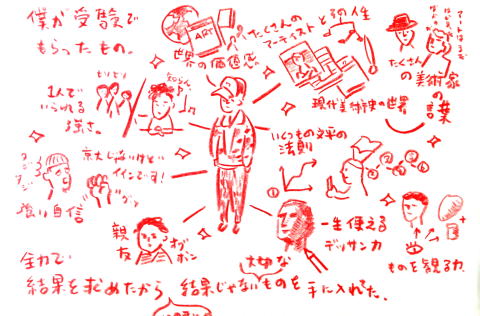 僕が受験で
もらったもの。
世界の価値感
ART
たくさんの
アーティストとその人生
現代美術史の世界
たくさん
の美術家
の言葉
1人で
いられる
強さ。
知らん
いくつもの文字の
法則
京大じゃないけどい
イインです!
強い自信
グッ
親
友
一生使える
デッサン力
ものを観る力
全力で
結果を求めたから 結果じゃない大切なものを手に入れてた。